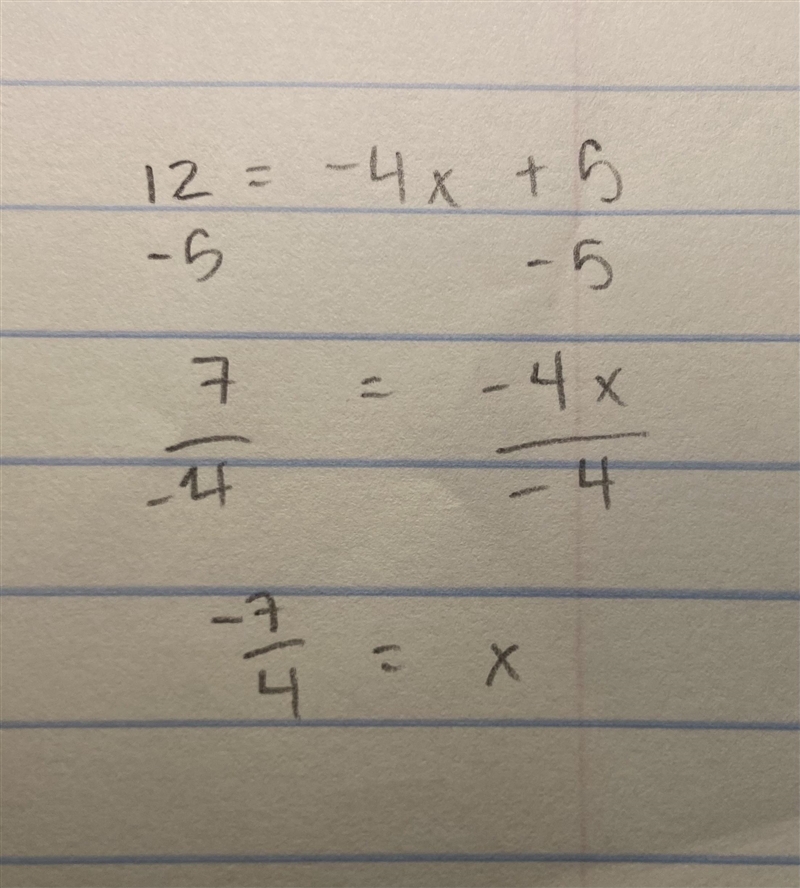 12 = -4x + 5
-5 -5
7 = -4x
-4 -4
-7
4 = x